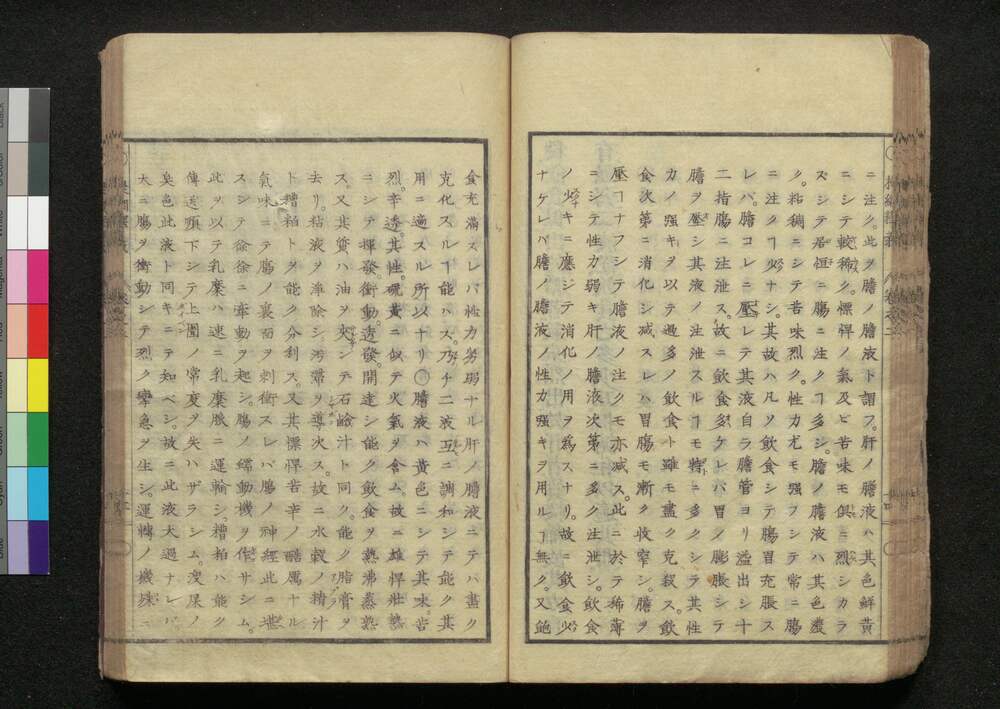 ニ注ク。此ヲ膽ノ膽液ト謂フ。肝ノ膽液ハ其色鮮黄
ニシテ較稀ク。慓悍ノ氣及ビ苦味モ俱ニ烈シカラ
ズシテ居恒ニ腸ニ注クヿ多シ。膽ノ膽液ハ其色濃
ク。粘稠ニシテ苦味烈ク。性力尤モ强フシテ常ニ腸
ニ注クヿ少ナシ。其故ハ凡ソ飲食シテ腸胃充脹ス
レバ。膽コレニ壓レテ其液自ラ膽管ヨリ溢出シ十
二指腸ニ注泄ス。故ニ飲食多ケレバ胃ノ膨脹シテ
膽ヲ壓シ其液ノ注泄スルヿモ特ニ多クシテ其性
力ノ强キヲ以テ過多ノ飲食ト雖モ盡ク克殺ス。飲
食次第ニ消化シ減スレハ胃腸モ漸ク收窄シ。膽ヲ
壓ヿナフシテ膽液ノ注クモ亦減ス。此ニ於テ稀薄
ニシテ性力弱キ肝ノ膽液次第ニ多ク注泄シ。飲食
ノ少キニ應ジテ消化ノ用ヲ爲スナリ。故ニ飲食少
ナケレバ膽ノ膽液ノ性力强キヲ用ルヿ無ク。又飽
食充滿スレバ性力劣弱ナル肝ノ膽液ニテハ盡ク
克化スルヿ能ハズ。乃チ二液互ニ調和シテ能ク其
用ニ適スル所以ナリ〇膽液ハ黄色ニシテ其味。苦
烈。辛透。其性。硫黄ニ似テ火氣ヲ含ム。故ニ雄悍壯熱
ニシテ揮發衝動。透發。開達シ能ク飲食ヲ熟沸蒸熟
ス。又其質ハ油ヲ夾ンデ石鹼汁ト同ク。能ク脂膏ヲ
去リ。粘液ヲ淨除シ汚滯ヲ導次ス。故ニ水穀ノ精汁
ト糟粕トヲ能ク分剖ス。又其慓悍苦辛ノ酷厲ナル
氣味ニテ腸ノ裏面ヲ刺衝スレバ腸ノ神經此ニ堪
ズシテ徐徐ニ牽動ヲ起シ。腸ノ蠕動機ヲ作サシム。
此ヲ以テ乳糜ハ速ニ乳糜脈ニ運輸シ。糟粕ハ能ク
傳送順下シテ上圊ノ常度ヲ失ハザラシム。溲屎ノ
矣色此液ト同キニテ知ベシ。故ニ此液大過ナレバ。
大ニ腸ヲ衝動シテ烈ク攣急ヲ生シ。運轉ノ機殊ニ